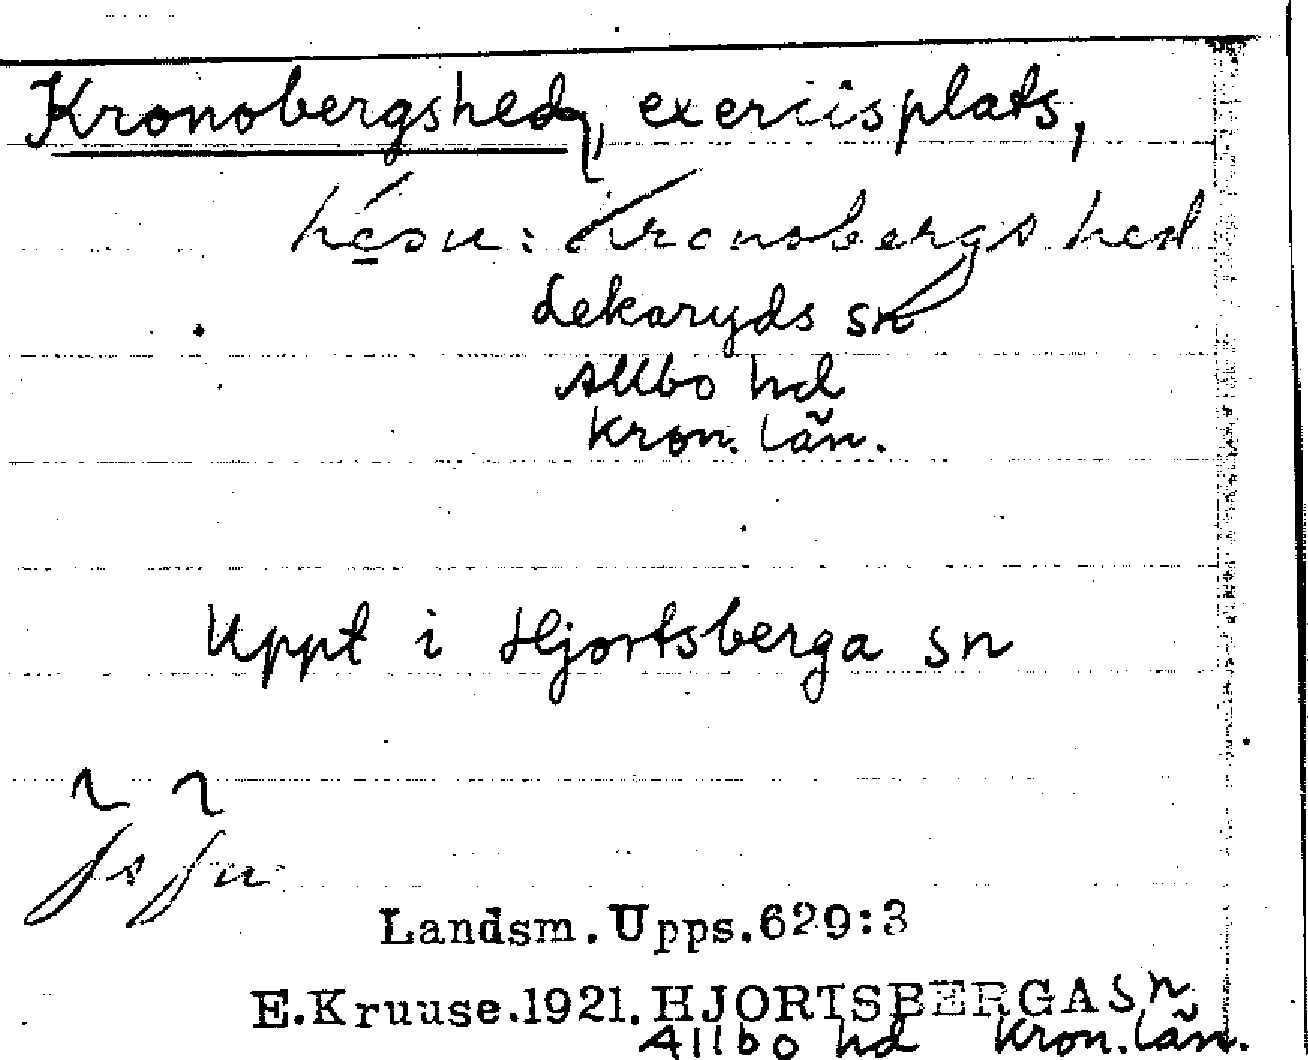 Kronobergshed, exercisplats,
hésn: Kronobergs hed
Lekaryds sn
Allbo hd
Kron. län.
Uppt i Hjortsberga sn
Landsm. Upps. 629:3
E. Kruuse. 1921. HJORTSBERGA sn
Allbo hd Kron. län.